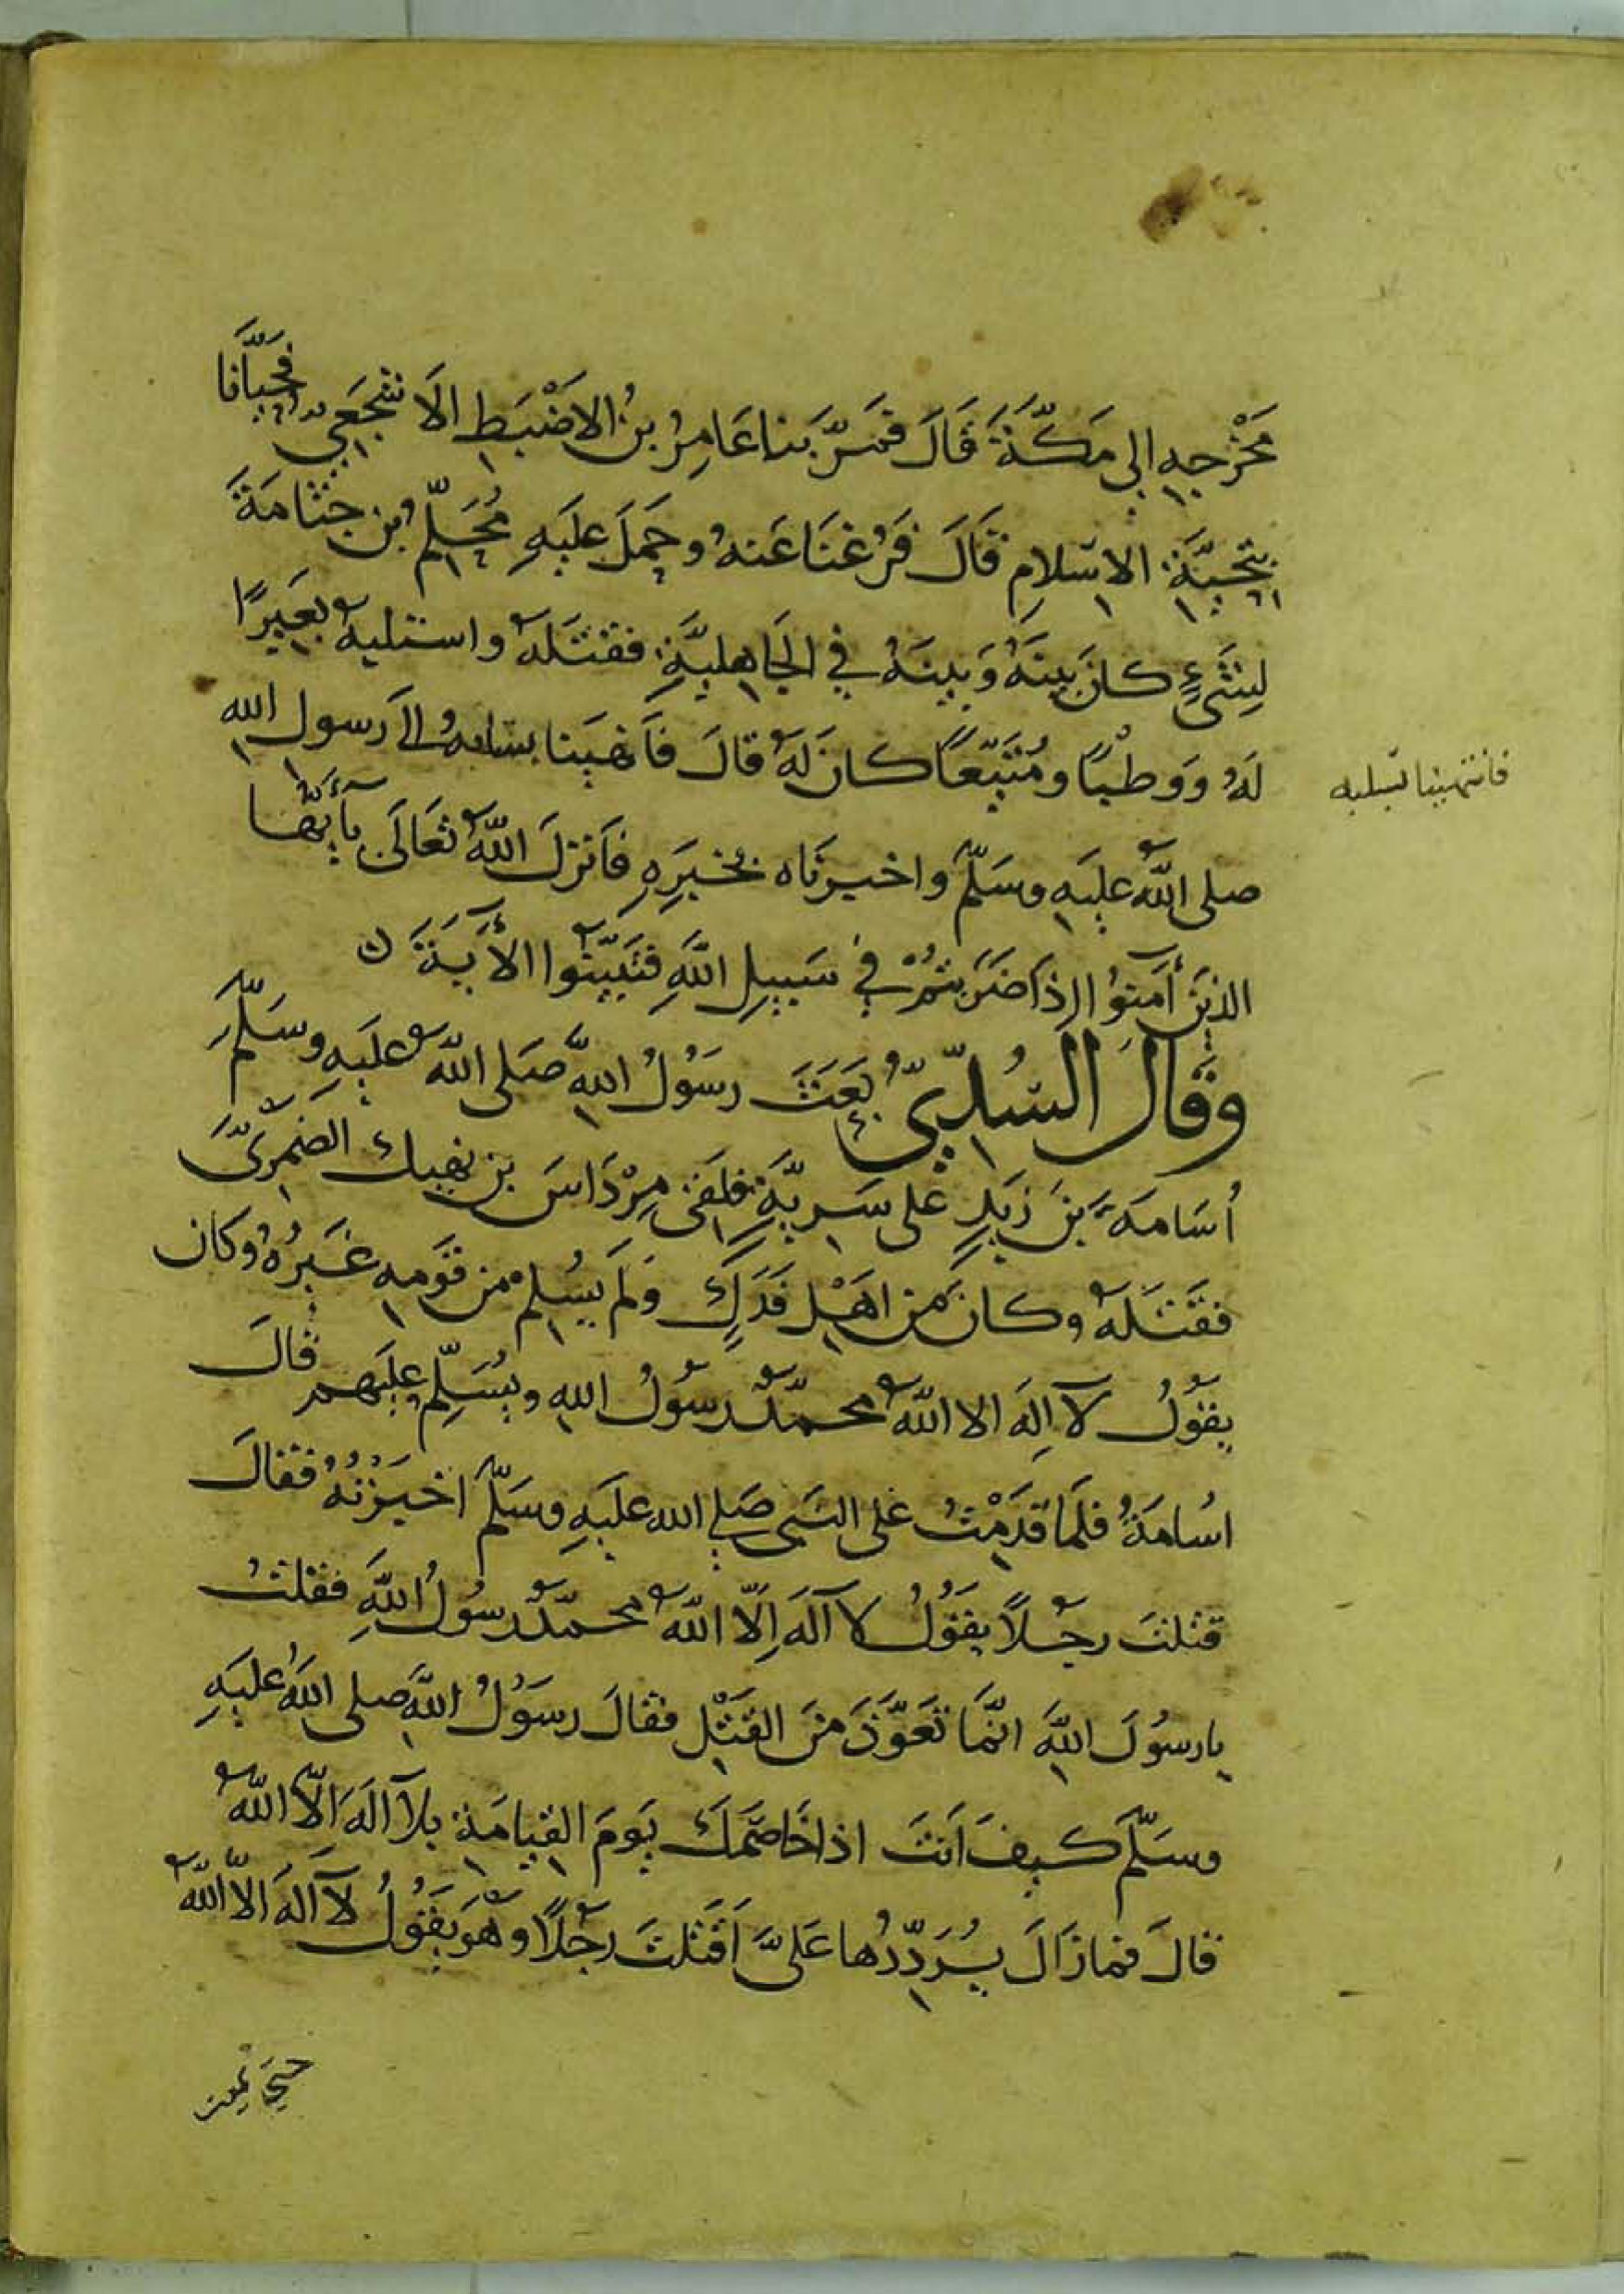 مَخْرَجِهِ الى مَكَّةَ قَالَ فَمَرَّ بنا عَامِرُ بنُ الاضْبَطِ الاَشْجَعِيُّ فحَيَّانَا
بِتَحِيَّةِ الاسْلامِ قَالَ فَرُغنَا عَنهُ وحَمَلَ عَليَهِ مُحَلِّمُ بن جَثَّامَةَ
لِشَىْءٍ كانَ بَينَهُ وَبَينَهُ في الجَاهِليَّةِ فقتَلَهُ واستلبه بَعيرًا
لَهُ وَوَطْبًا ومُتَيّعًا كانَ لَهُ قالَ فَانهَينا بسلبهُ الىَ رَسول الله
صلى اللّهُ عليَهِ وسَلّمَ واخبرنَاه بخَبَرِهِ فاَنزلَ اللّهُ تعَالَى يآءَيُّها
الذينَ أمَنوُا اذَا ضَرَبتُمْ في سَبيلِ اللّهِ فتَبَيَّنُوا الأيَةَ ن
وَقَالَ السُّدِّيُّ بَعَثَ رسَوُلُ اللهِ صَلى اللّهُ عليَهِ وسَلّمَ
أسَامةَ بَنَ زيَدٍ عَلى سَريَّةٍ فلَقىَ مِرْدَاسَ بن نهيك الضمرىَّ
فقَتَلهُ وكانَ مِن اهْلِ فَدَكٍ وَلَم يسُلم من قَومِهِ غَيرُهُ وكان
يقوُلُ لآ اِلَهَ الا اللّهُ محمّدٌ رسوُلُ اللهِ ويُسَلّمُ عليَهم قالَ
اسُامَةُ فلَمَا قَدِمْتُ عَلى النبَى صَلى الله عليَهِ وسَلّمَ اخبَرْتُهُ فقالَ
قتلتَ رجُلاً يقَوُلُ لا آلَهَ اِلّا اللّهُ محمّدٌ رسوُلُ اللّهِ فقلتُ
يا رسوُلَ اللّهِ انمَّا تعَوَّذَ منَ القَتْلِ فقالَ رسَوُلُ اللّهِ صلى اللّهُ عليَهِ
وسَلّمَ كيفَ اَنتَ اذا خَاصَمَكَ يَومَ القِيامَةِ بلاَ آلَهَ الاّ اللّهُ
قالَ فما زَالَ يُرَدّدُها عَلىَّ اَقَتَلتَ رَجُلاً وهُوَ يقَوُلُ لآ آلَهَ الاّ اللّهُ
فانتهينا بسلبه
حتى تمنيت